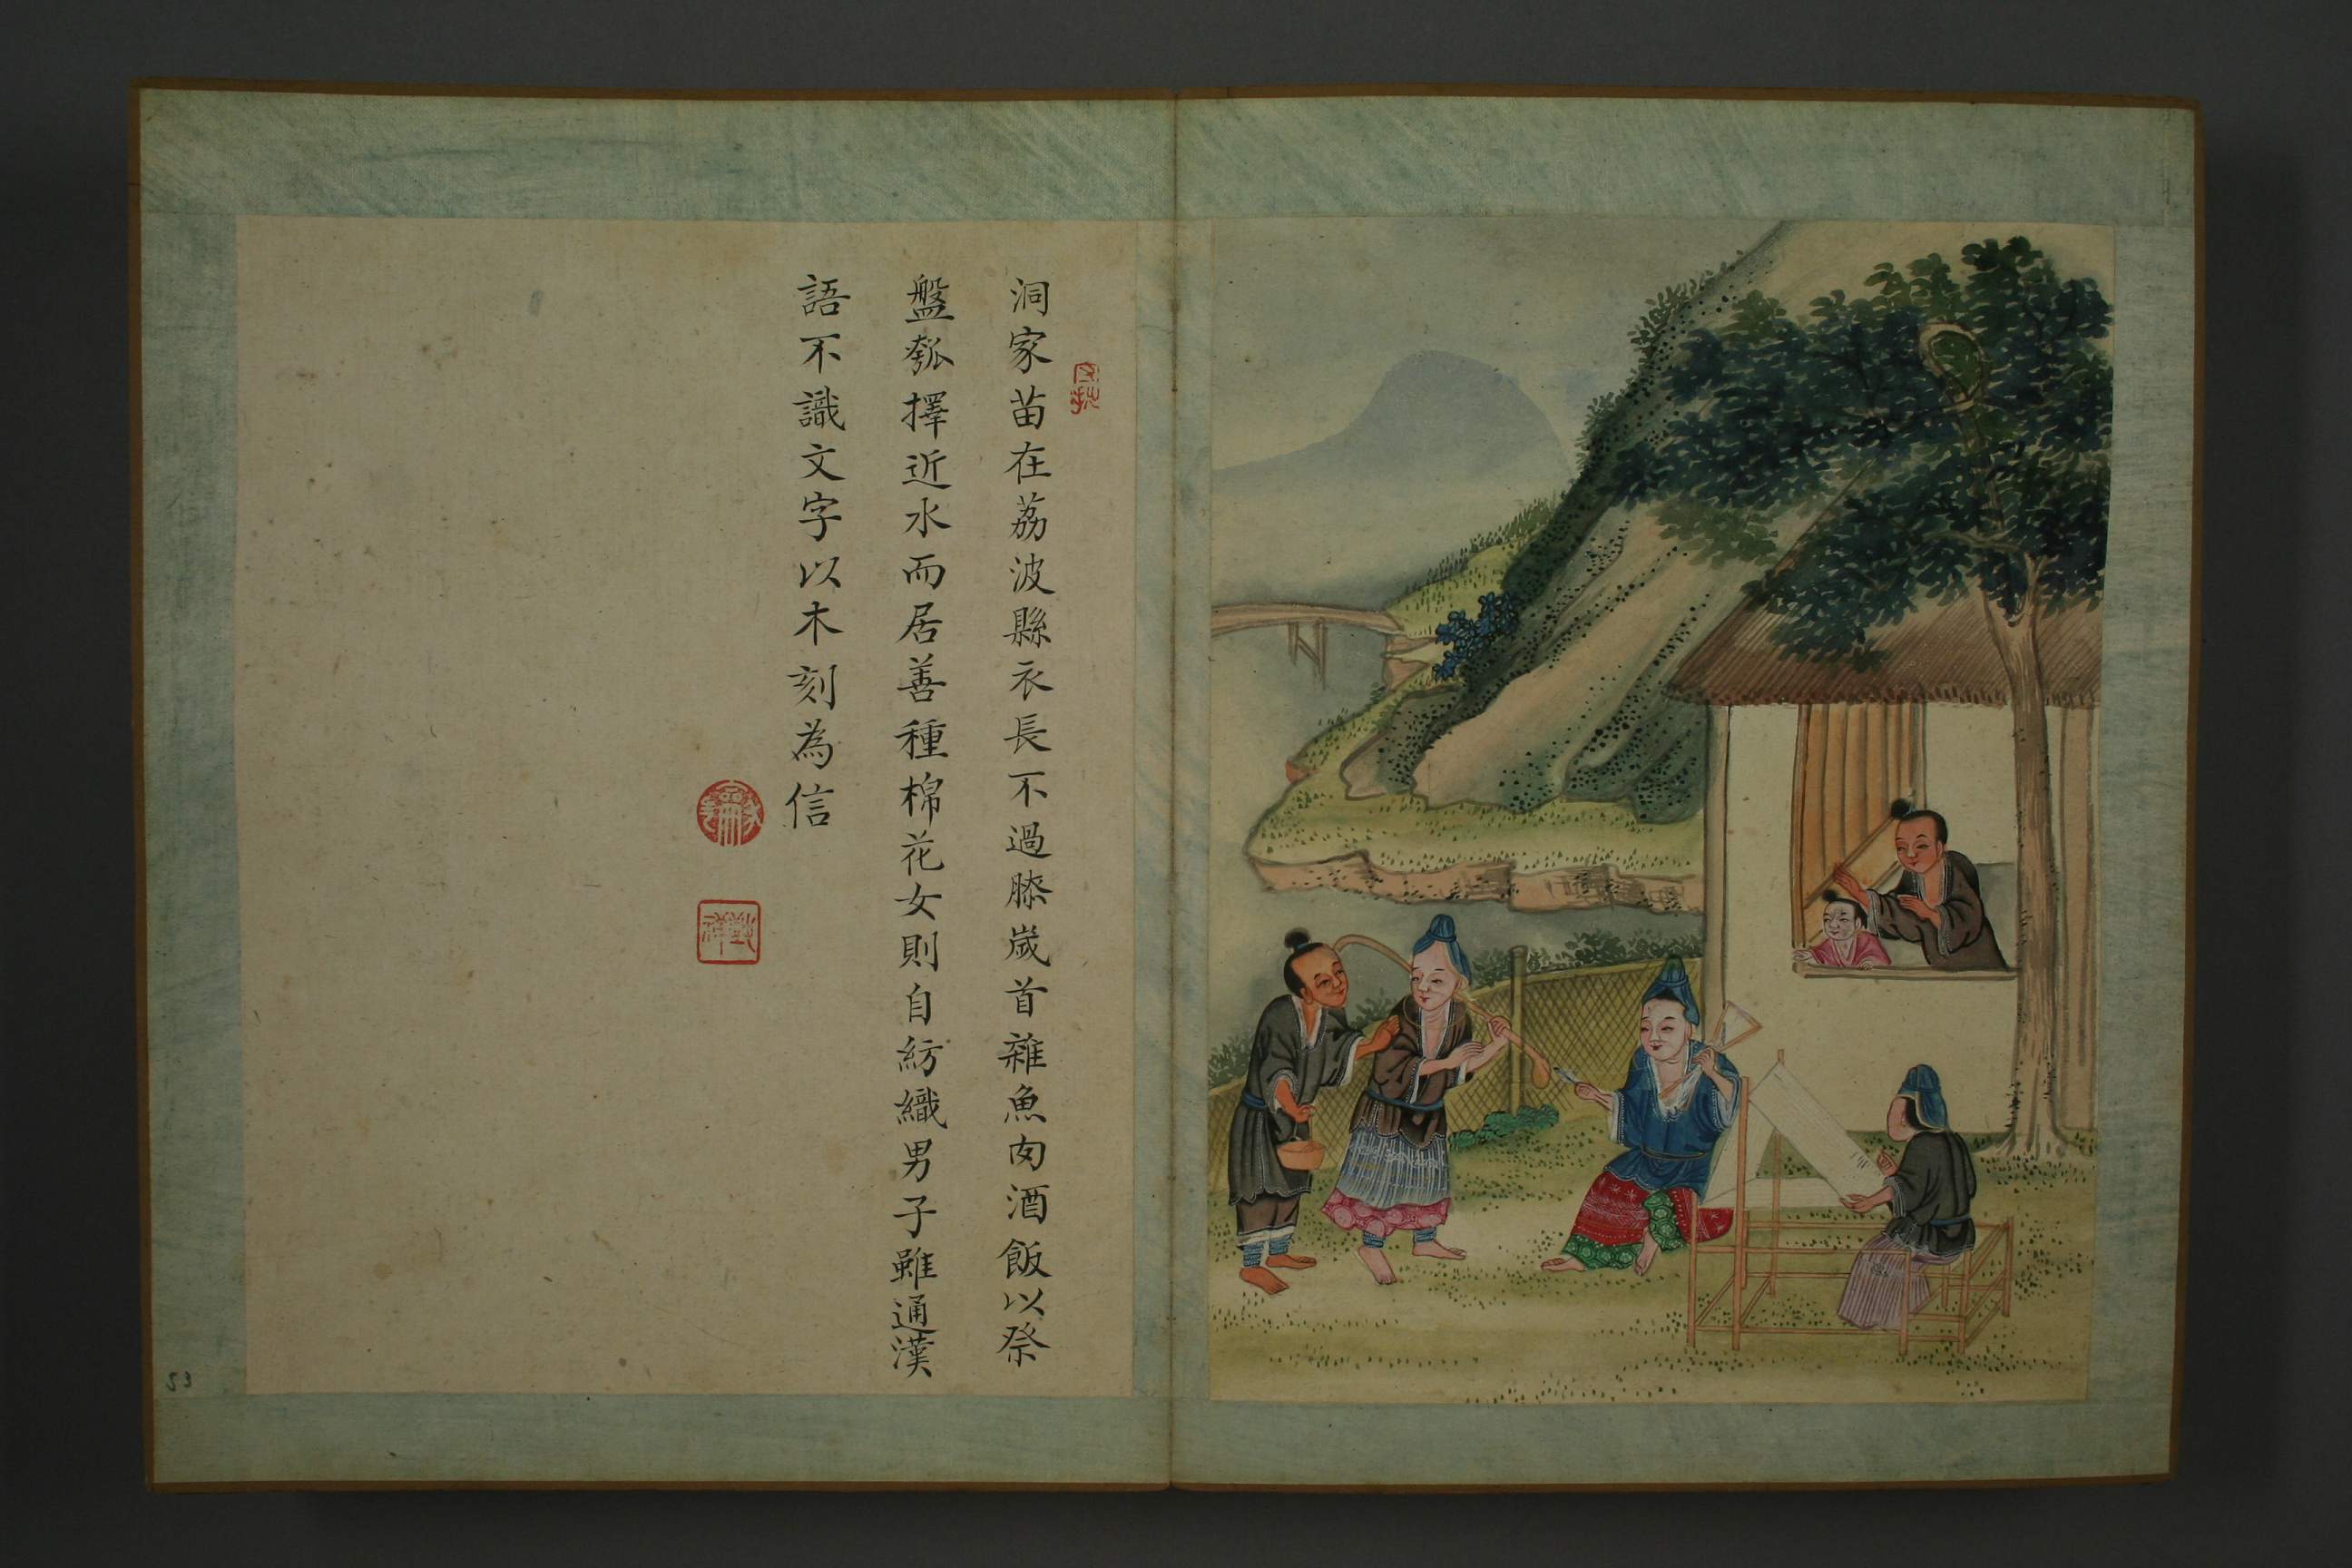 洞家苗在荔波縣衣長不過膝歲首雜魚肉酒飯以祭
盤瓠擇近水而居善種棉花女則自紡織男子雖通漢
語不識文字以木刻為信
53